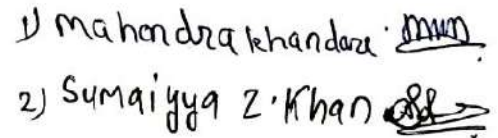 1) Mahendra Khandare.
2) Sumaiyya Z. Khan